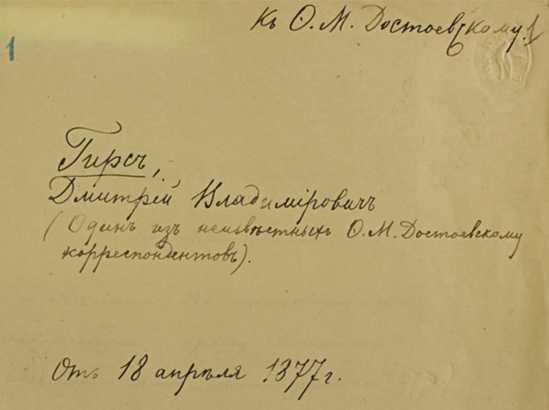 1
Къ Ѳ. М. Достоевскому. 1
Гирсъ,
Дмитрій Владиміровичъ
(Одинъ изъ неизвѣстныхъ Ѳ. М. Достоевскому
корреспондентовъ).
Отъ 18 апрѣля 1877 г.